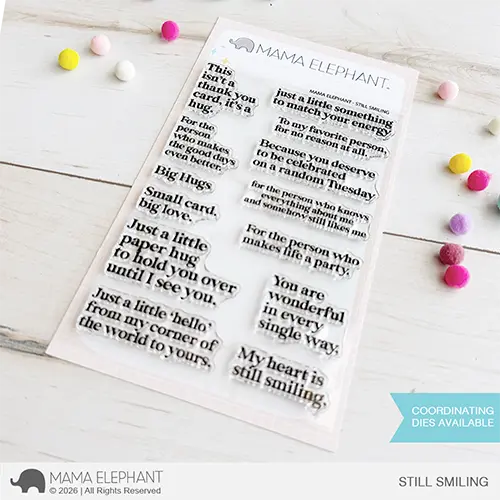 MAMA ELEPHANT.
MAMA ELEPHANT - STILL SMILING
This
isn't a
thank you
card, it's a
hug.
For the
person
who makes
the good days
even better.
Big Hugs
Small card,
big love.
Just a little
paper hug
to hold you over
until I see you.
Just a little 'hello'
from my corner of
the world to yours.
just a little something
to match your energy
To my favorite person,
for no reason at all.
Because you deserve
to be celebrated
on a random Tuesday.
for the person who knows
everything about me
and somehow still likes me
For the person who
makes life a party.
You are
wonderful
in every
single way.
My heart is
still smiling.
COORDINATING
DIES AVAILABLE
MAMA ELEPHANT
© 2026 | All Rights Reserved
STILL SMILING